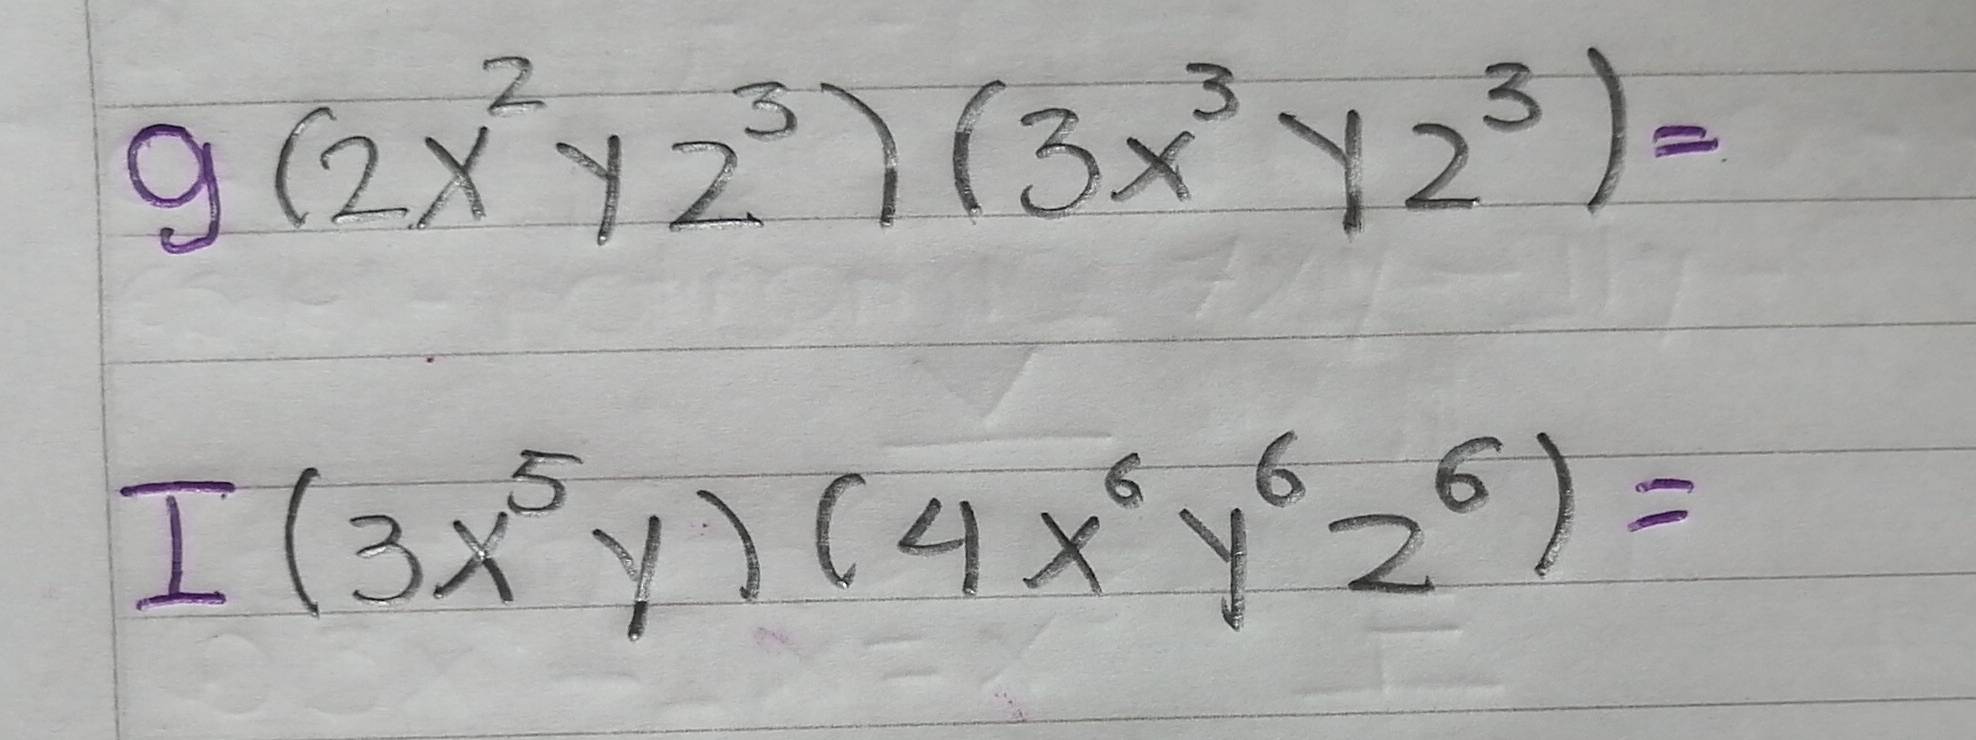 g (2x²yz³) (3x³yz³)=
I (3x⁵y) (4x⁶y⁶z⁶)=